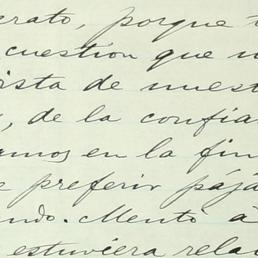 erato, porque t
cuestion que n
ista de nuest
, de la confia
amos en la fin
e preferir pája
ndo. Mentó á
estuviera rela